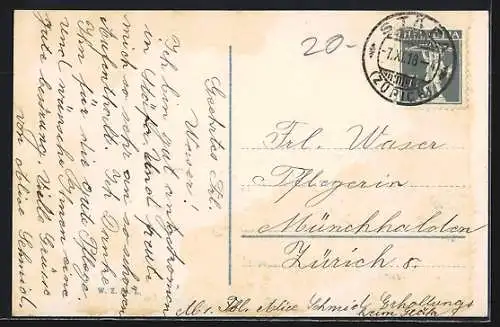 Geehrtes Frl.
Waser!
Ich bin gut angekomen
in Stäfa. Und freute
mich so sehr an so schönen
Aufenthalt. Ich Danke
Ihn für die gute Pflege.
und wünsche Ihnen eine
gute besserung. Viele Grüsse
von Aline Schmid.
20-
STÄFA
-7.XI.18-
(ZÜRICH)
Frl. Waser
Pflegerin
Münchhalden
Zürich 8.
W. Z.
Frl. Alice Schmid Erholungs
heim